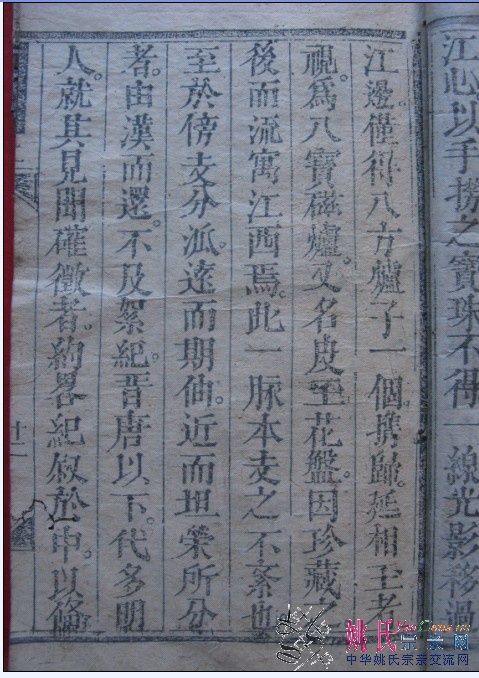 江心以手撈之寶珠不得一線光影移過
江邊。僅得八方爐子一個。携歸。延相玉者
視。為八寶磁爐。又名皮至花盤。因珍藏
後而流寓江西焉。此一脉本支之不紊也
至於傍支分派。遠而期仙。近而坦榮所分
者。由漢而還。不及絮紀。晋唐以下。代多明
人。就其見聞確徵者。約畧紀叙於中。以俻
廿二
姚氏宗亲网
中华姚氏宗亲交流网